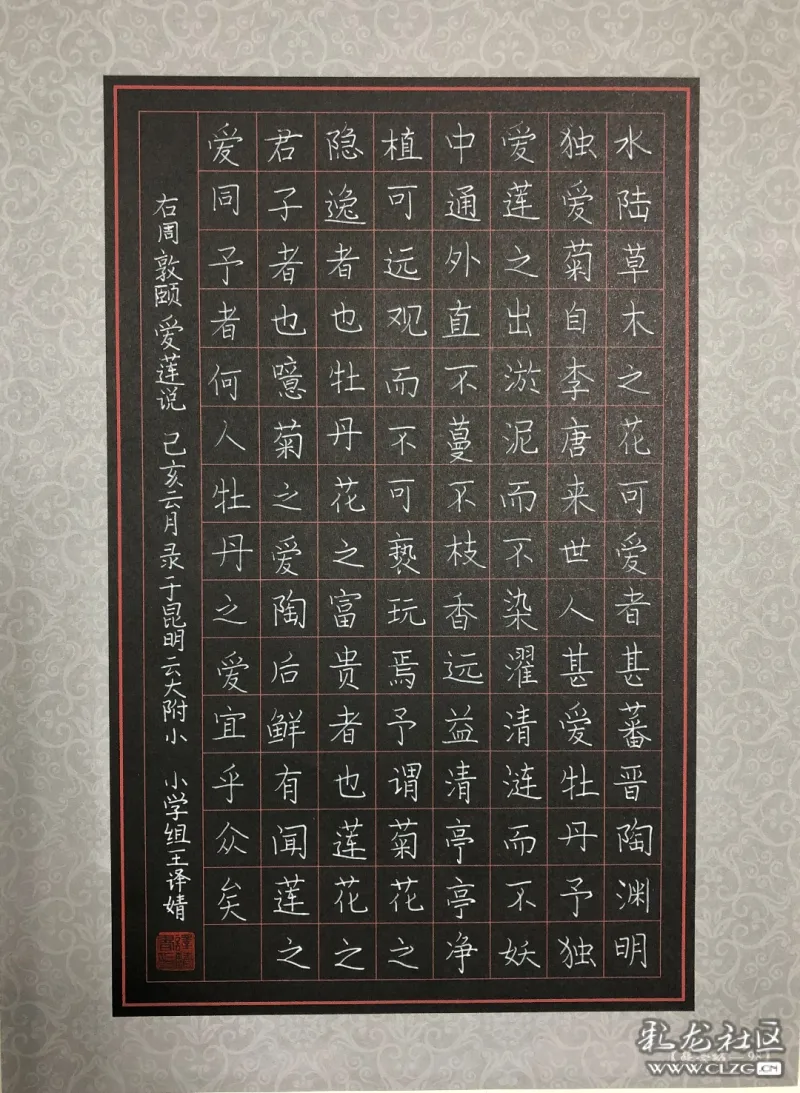 水陆草木之花可爱者甚蕃晋陶渊明
独爱菊自李唐来世人甚爱牡丹予独
爱莲之出淤泥而不染濯清涟而不妖
中通外直不蔓不枝香远益清亭亭净
植可远观而不可亵玩焉予谓菊花之
隐逸者也牡丹花之富贵者也莲花之
君子者也噫菊之爱陶后鲜有闻莲之
爱同予者何人牡丹之爱宜乎众矣
右周敦颐爱莲说 己亥云月录于昆明云大附小 小学组王译婧
彩龙社区
WWW.CLZG.CN